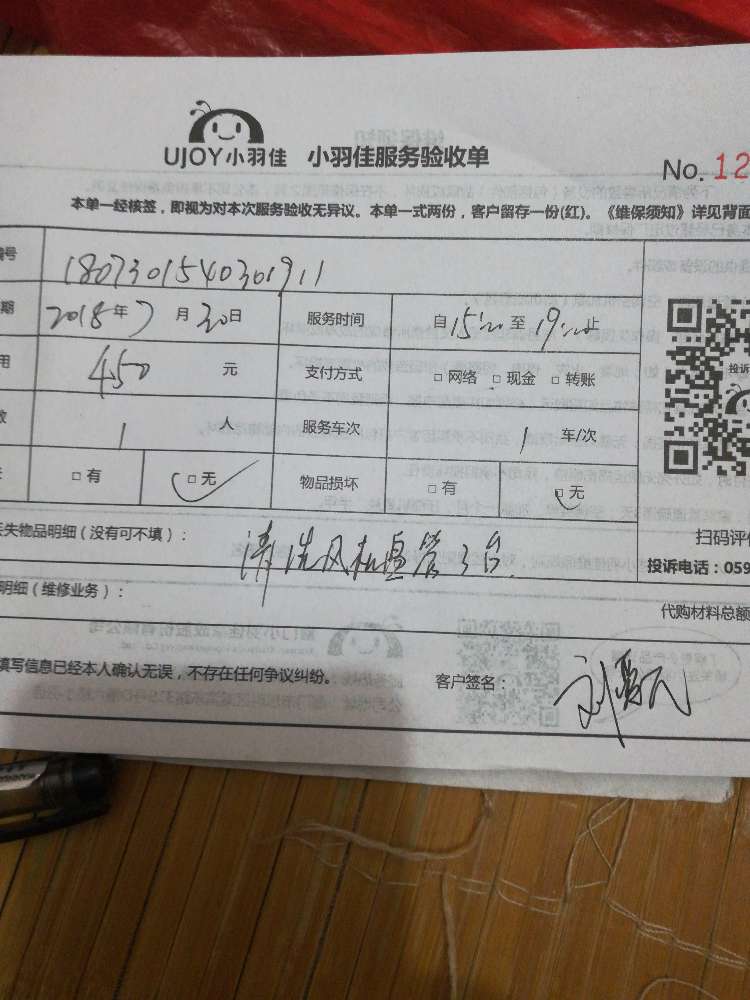 UJOY小羽佳 小羽佳服务验收单
No. 12
本单一经核签，即视为对本次服务验收无异议。本单一式两份，客户留存一份(红)。《维保须知》详见背面
编号 1807301540301911
期 2018年7月30日 服务时间 自15:20至19:20止
用 450元 支付方式 □网络 □现金 □转账
数 1人 服务车次 1车/次
□有 □无 物品损坏 □有 □无
投诉
扫码评价
丢失物品明细（没有可不填）： 清洗风机盘管3台
投诉电话：059
明细（维修业务）：
代购材料总额
填写信息已经本人确认无误，不存在任何争议纠纷。 客户签名：